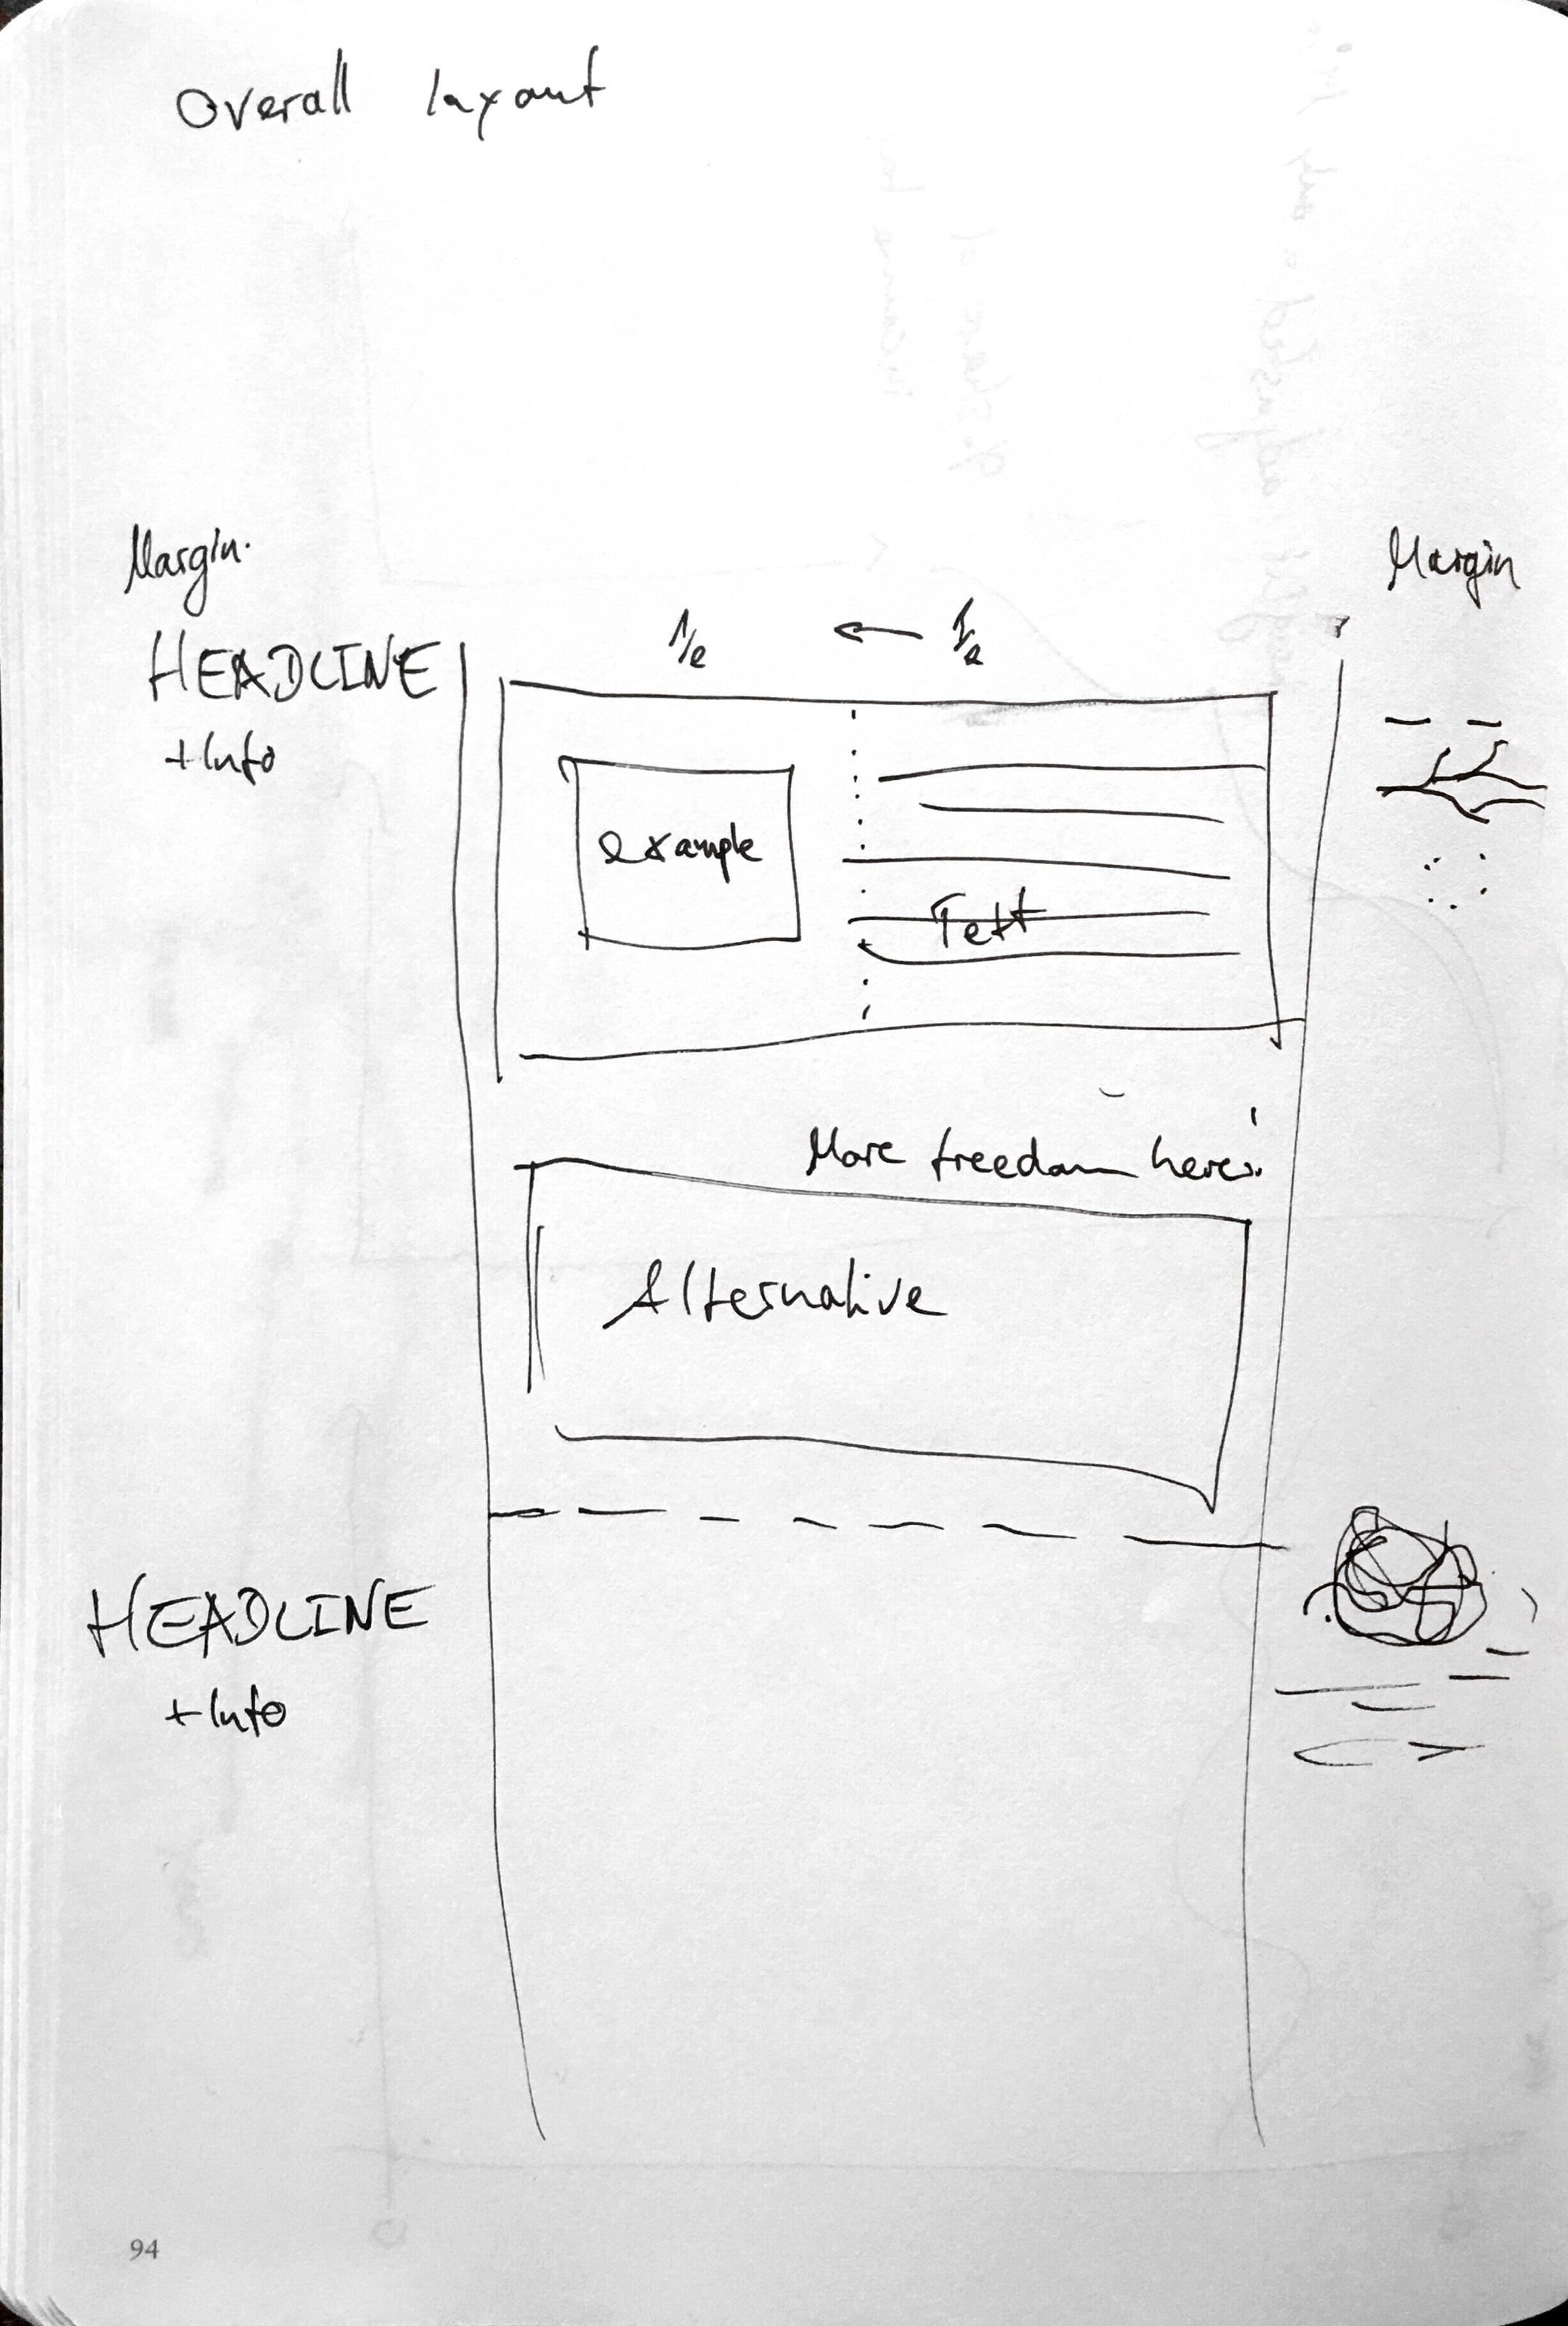 Overall layout
Margin.
Margin
1/2 ← 1/2
HEADLINE
+ Info
example
Text
More freedom here!
Alternative
HEADLINE
+ Info
94